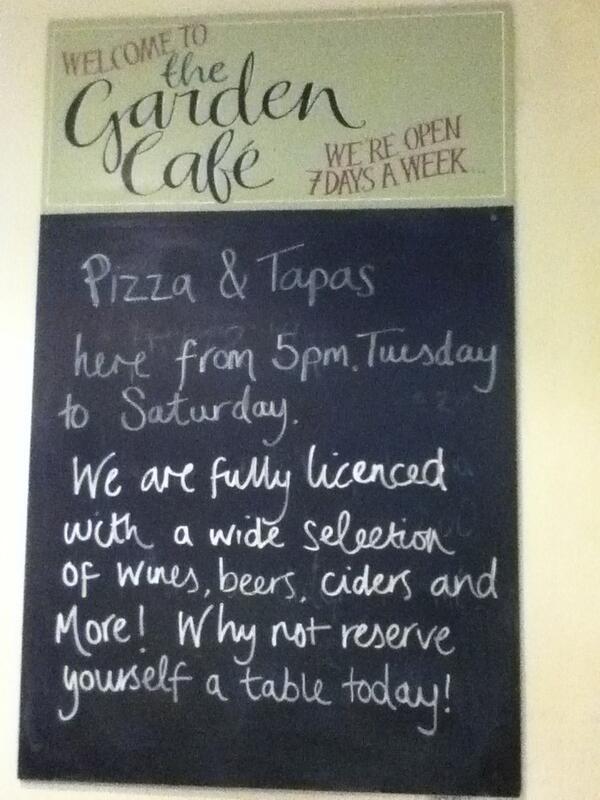 WELCOME TO
the
Garden
Café
WE'RE OPEN
7 DAYS A WEEK...
Pizza & Tapas
here from 5pm. Tuesday
to Saturday.
We are fully licenced
with a wide selection
of wines, beers, ciders and
More! Why not reserve
yourself a table today!